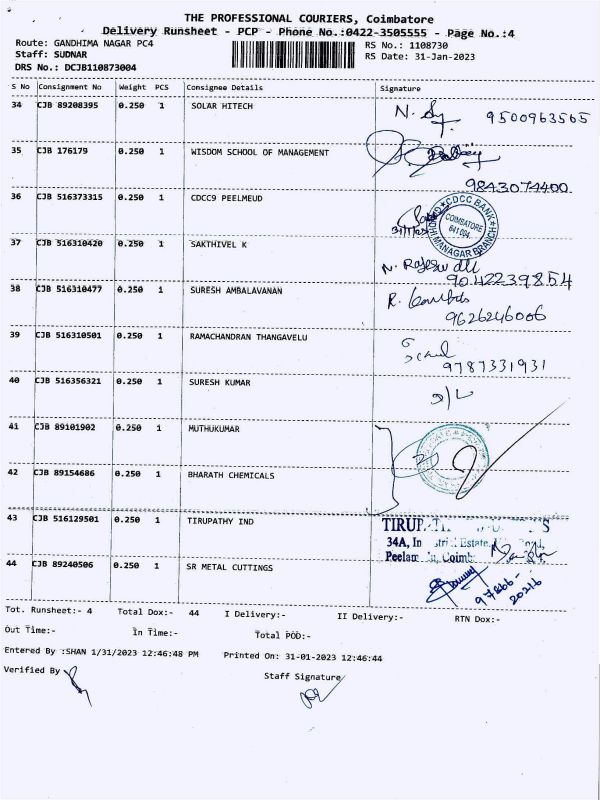 THE PROFESSIONAL COURIERS, Coimbatore
Delivery Runsheet - PCP - Phone No.:0422-3505555 - Page No.:4
Route: GANDHIMA NAGAR PC4 RS No.: 1108730
Staff: SUDNAR RS Date: 31-Jan-2023
DRS No.: DCJB110873004
S No Consignment No Weight PCS Consignee Details Signature
34 CJB 89208395 0.250 1 SOLAR HITECH 9500963565
35 CJB 176179 0.250 1 WISDOM SCHOOL OF MANAGEMENT
9843074400
36 CJB 516373315 0.250 1 CDCC9 PEELMEUD
CDCC BANK
COIMBATORE
641 004
37 CJB 516310420 0.250 1 SAKTHIVEL K
9042239854
38 CJB 516310477 0.250 1 SURESH AMBALAVANAN
9626246006
39 CJB 516310501 0.250 1 RAMACHANDRAN THANGAVELU
9787331931
40 CJB 516356321 0.250 1 SURESH KUMAR
41 CJB 89101902 0.250 1 MUTHUKUMAR
42 CJB 89154686 0.250 1 BHARATH CHEMICALS
43 CJB 516129501 0.250 1 TIRUPATHY IND
34A, In Estate,
44 CJB 89240506 0.250 1 SR METAL CUTTINGS
97866-
20216
Tot. Runsheet:- 4 Total Dox:- 44 I Delivery:- II Delivery:- RTN Dox:-
Out Time:- In Time:- Total POD:-
Entered By :SHAN 1/31/2023 12:46:48 PM Printed On: 31-01-2023 12:46:44
Verified By Staff Signature